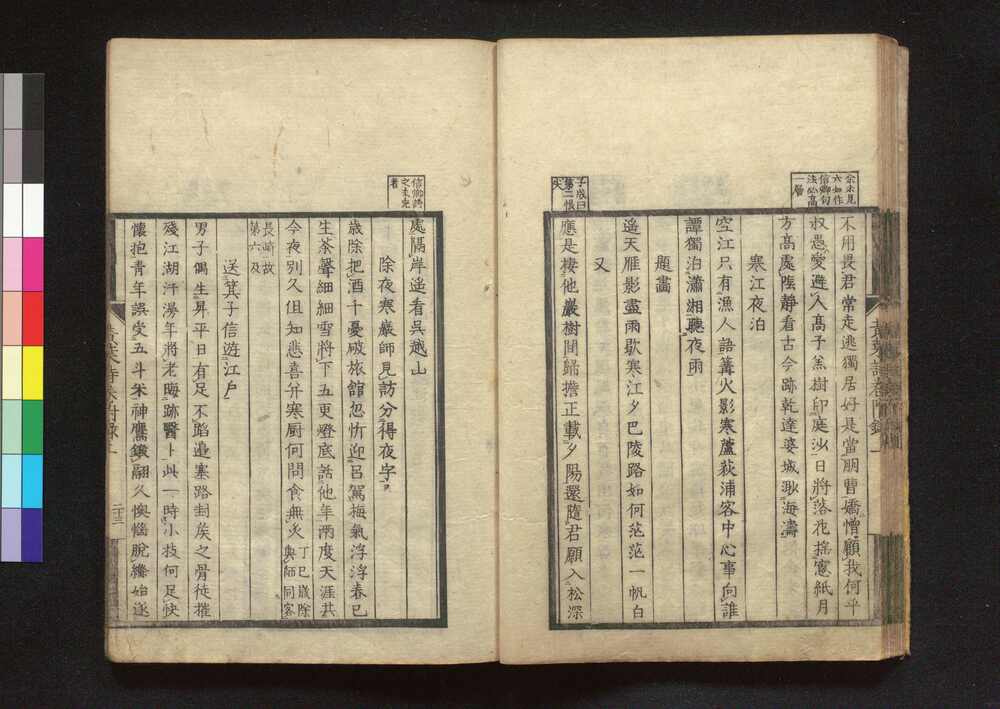 余未見
六如作
信卿句
法必高
一層
不用畏君常走逃獨居好是當朋曹嬌憎顧我何平
叔愚愛避人高子羔樹印庭沙日將落花搖窓紙月
方高處陞靜看古今跡乾達婆城渺海濤
寒江夜泊
空江只有漁人語篝火影寒蘆荻浦客中心事向誰
譚獨泊瀟湘聽夜雨
題畵
遥天雁影盡雨歇寒江夕巴陵路如何茫茫一帆白
又
子成曰
第二恨
失
應是棲他巖樹間歸擔正載夕陽還隨君願入松深
黄葉詩卷附錄
信卿詩
之未完
者
處隔岸遥看呉越山
除夜寒巖師見訪分得夜字
歳除把酒千憂破旅館忽忻迎呂駕梅氣浮浮春已
生茶聲細細雪將下五更燈底話他年兩度天涯共
今夜別久但知悲喜并寒厨何問食無炙
丁巳歳除
與師同客
長崎故
第六及
送箕子信遊江戸
男子偶生昇平日有足不蹈邉塞路封矦之骨徒摧
殘江湖汗漫年將老晦跡醫卜此一時小技何足快
懷抱青年誤受五斗米神鷹鎩翮久懊惱脫鞲始遂
黄葉詩卷附錄
二十三